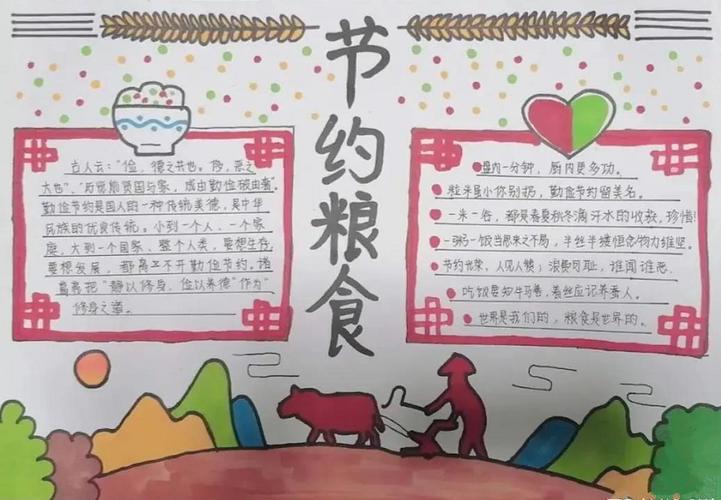 节约粮食
古人云："俭，德之共也。侈，恶之
大也"、"历览前贤国与家，成由勤俭破由奢"。
勤俭节约是国人的一种传统美德，是中华
民族的优良传统。小到一个人、一个家
庭，大到一个国家、整个人类，要想生存，
要想发展，都离不开勤俭节约。诸
葛亮把"静以修身，俭以养德"作为"
修身之道。
盘内一分钟，厨内更多功。
粒米虽小你别扔，勤俭节约留美名。
一米一谷，都是春夏秋冬滴汗水的收获，珍惜!
一粥一饭当思来之不易，半丝半缕恒念物力维坚。
节约光荣，人见人赞；浪费可耻，谁闻谁恶。
吃饭要知牛马善，着丝应记养蚕人。
世界是我们的，粮食是世界的。